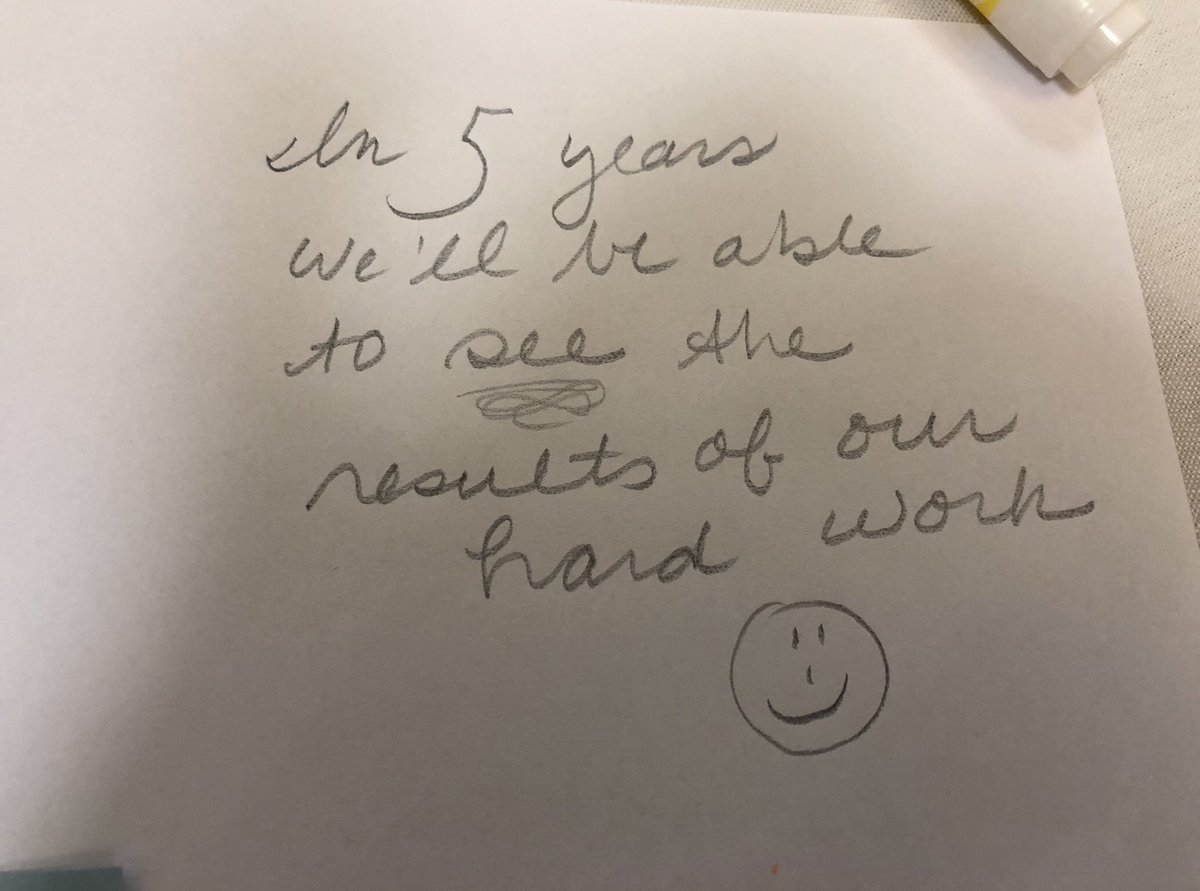 In 5 years
we'll be able
to see the
results of our
hard work